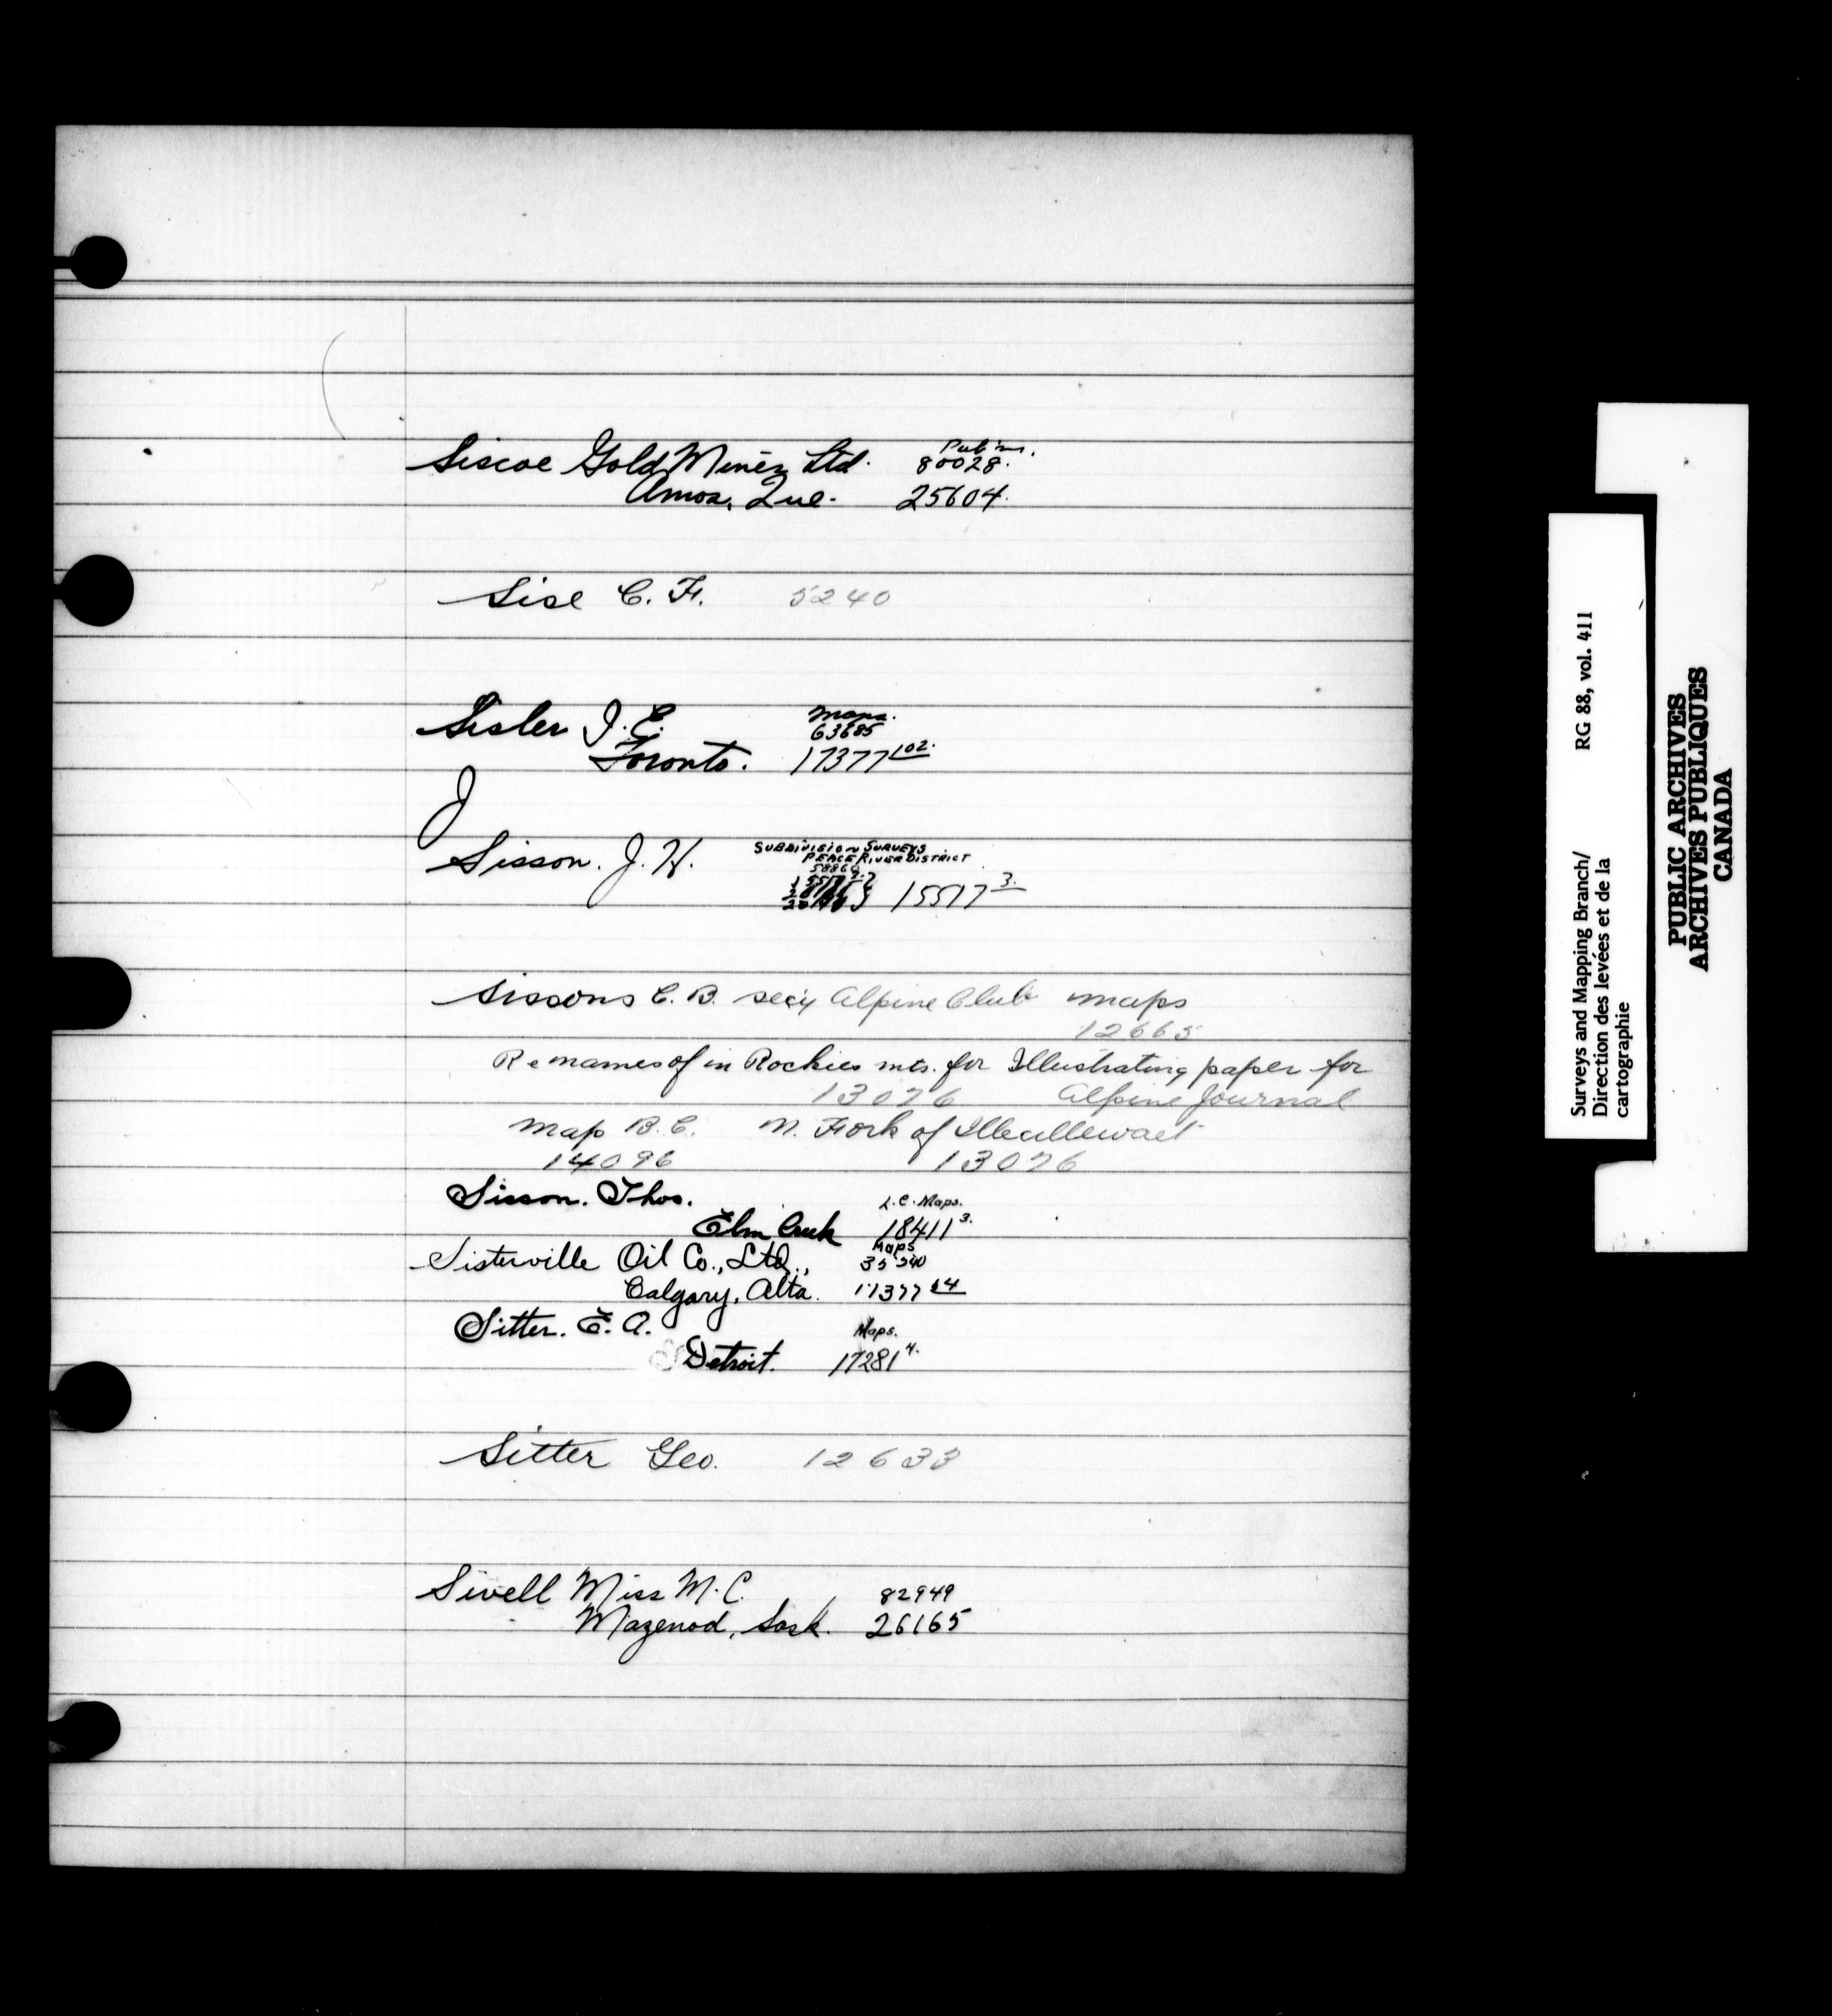 Siscoe Gold Mines Ltd. Pub'ns.
80028.
Amos, Que. 25604.
Sise C. F. 5240
Sisler J. E. Maps.
63685
Toronto. 17377 102.
Sisson. J. H. SUBDIVISION SURVEYS
PEACE RIVER DISTRICT
58869
15517 3.
Sissons C. B. sec'y Alpine Club maps
12665
Re names of in Rockies mts. for Illustrating paper for
13076 Alpine Journal
Map B. C. N. Fork of Illecillewaet
14096 13076
Sisson. Thos. L. C. Maps.
Elm Creek 18411 3.
Sisterville Oil Co., Ltd., Maps
35240
Calgary, Alta. 17377 64
Sitter. E. A. Maps.
Detroit. 17281 4.
Sitter Geo. 12633
Sivell Miss M. C. 82949
Mazenod, Sask. 26165
Surveys and Mapping Branch/ RG 88, vol. 411
Direction des levées et de la
cartographie
PUBLIC ARCHIVES
ARCHIVES PUBLIQUES
CANADA